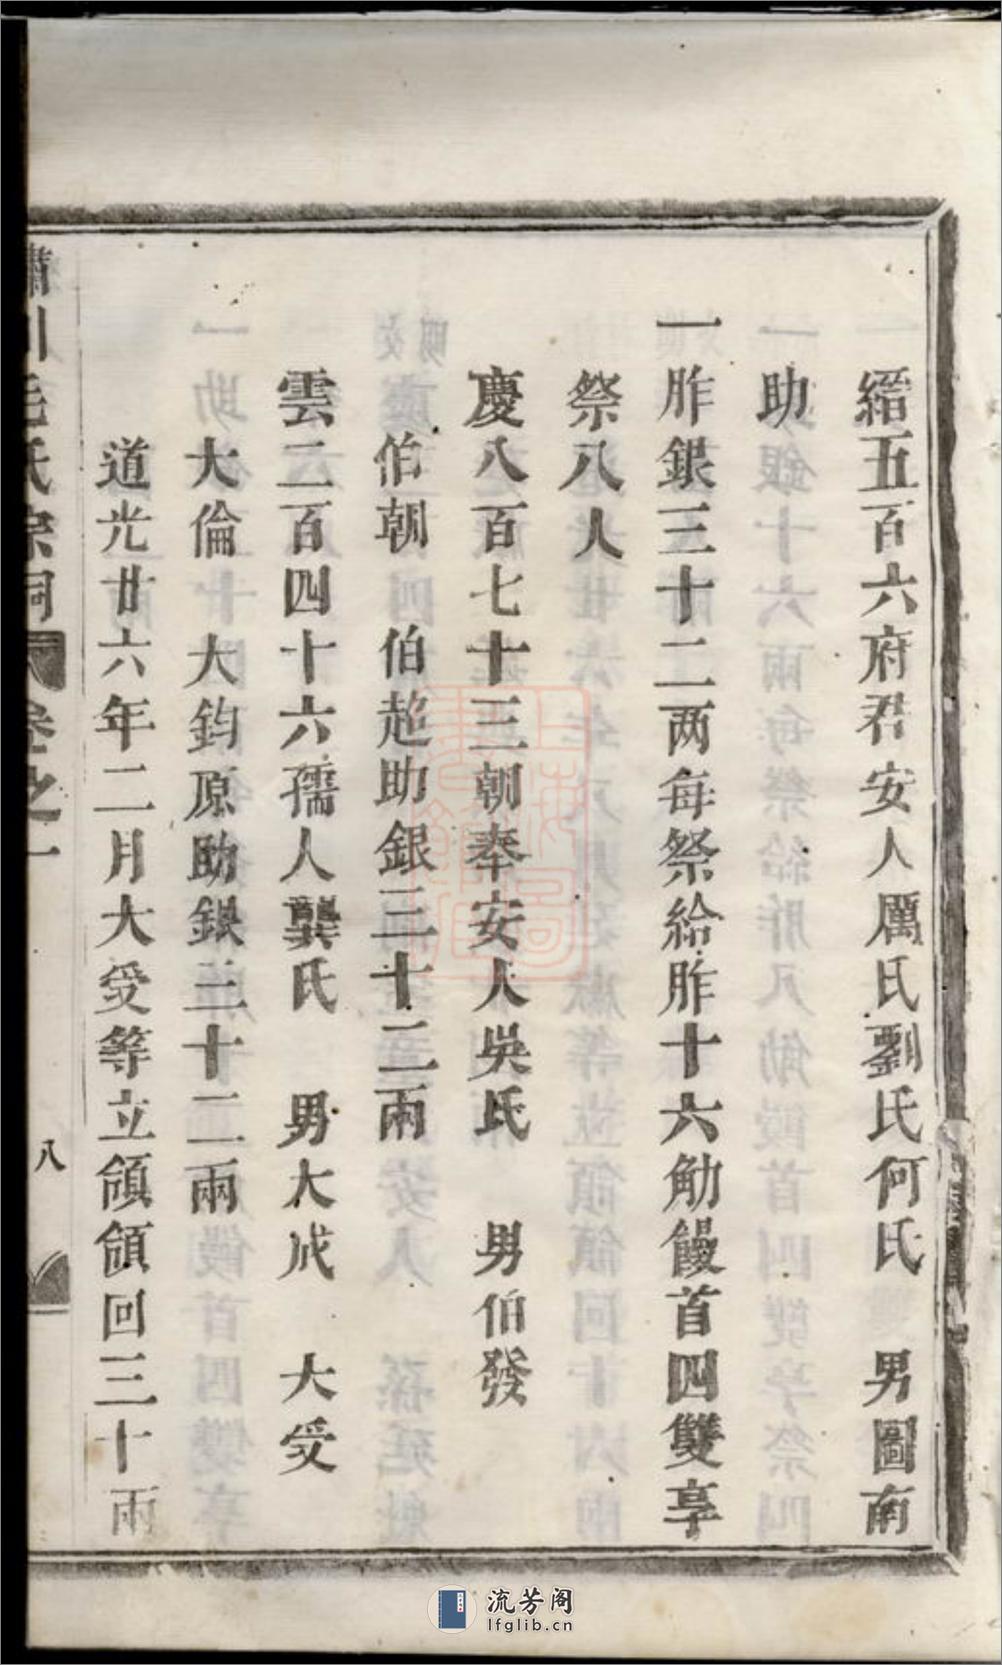 縉五百六府君安人厲氏劉氏何氏　男圖南
助
一胙銀三十二两每祭給胙十六觔饅首四雙享
祭八人
慶八百七十三朝奉安人吳氏　男伯發
伯朝　伯超助銀三十二兩
雲二百四十六孺人龔氏　男大成　大受
大倫　大鈞原助銀三十二兩
道光廿六年二月大受等立領領回三十兩
川毛氏宗祠　卷之一
八
流芳阁
lfglib.cn